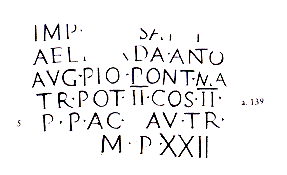 IMP·
AEL DA·ANTO
AVG·PIO·PONT·MA
TR·POT·II·COS·II· a. 139
5 P·P·AC AV·TR·
M·P·XXII